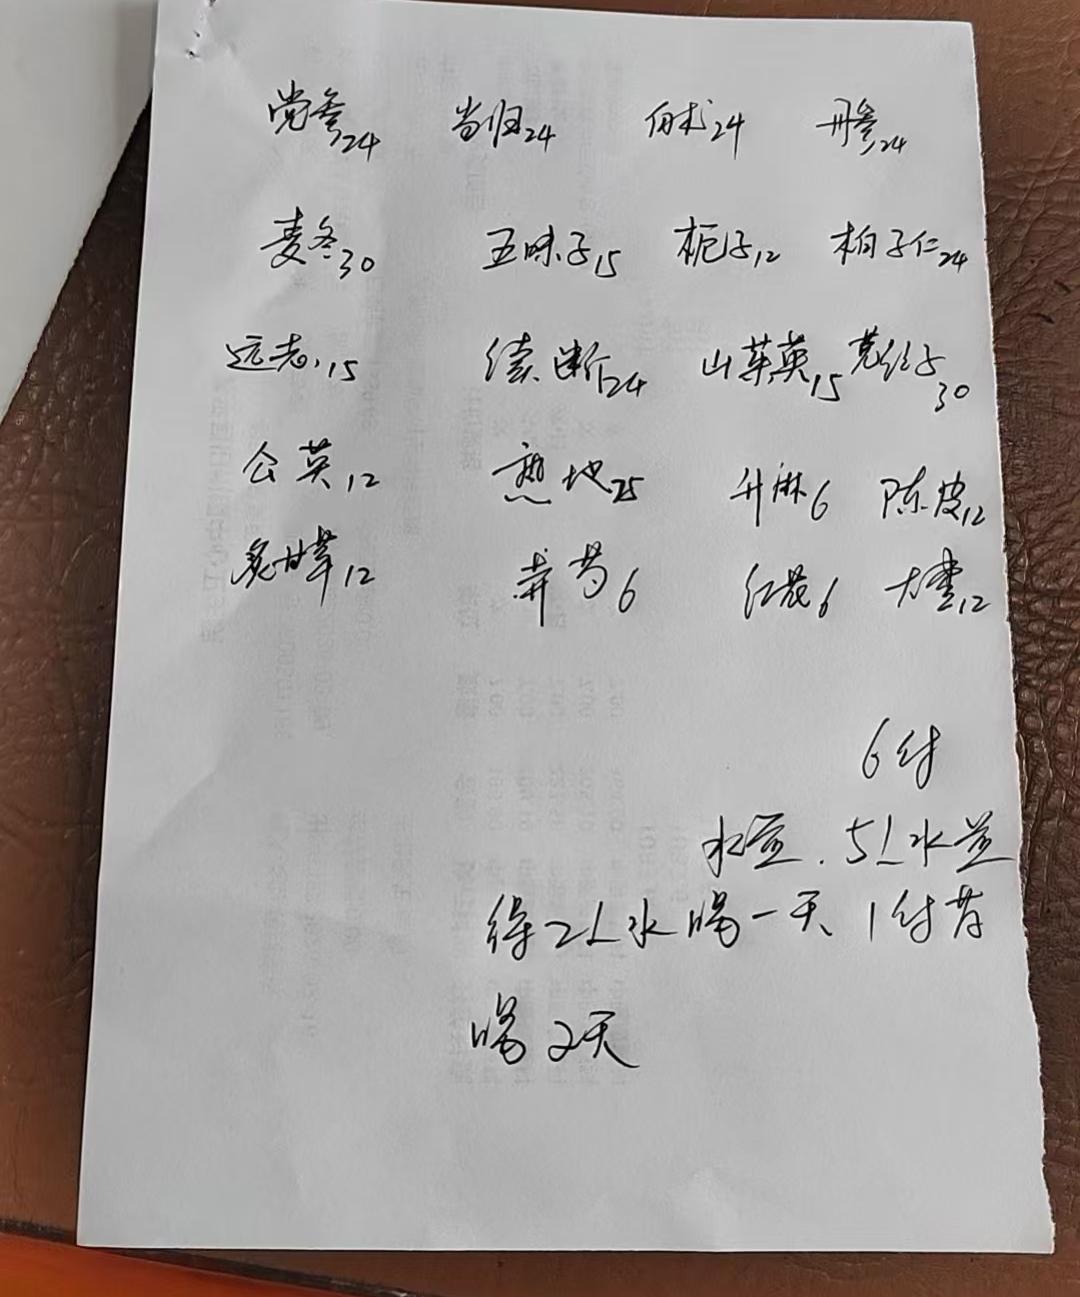 党参24 当归24 白术24 丹参24
麦冬30 五味子15 栀子12 柏子仁24
远志15 续断24 山茱萸15 菟丝子30
公英12 熟地25 升麻6 陈皮12
炙甘草12 赤芍6 红花6 大枣12
6付
水煎.5L水煎
得2L水 喝一天 1付药
喝2天